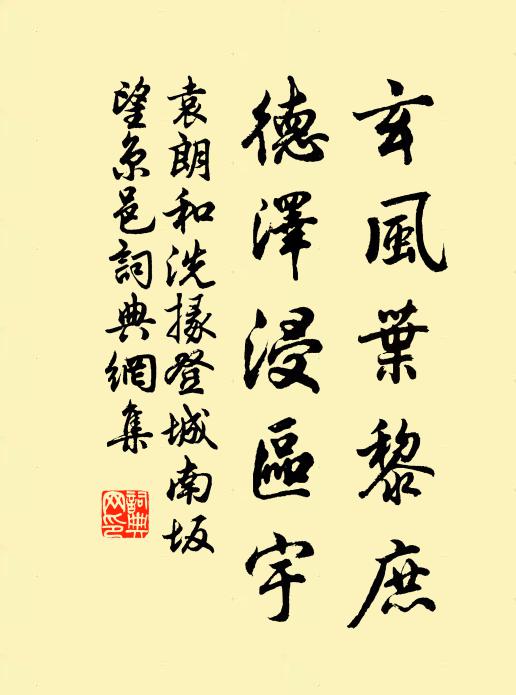 玄風葉黎庶
德澤浸區宇
袁朗和洗掾登城南坂
望京邑詞典網集
詞典
网印